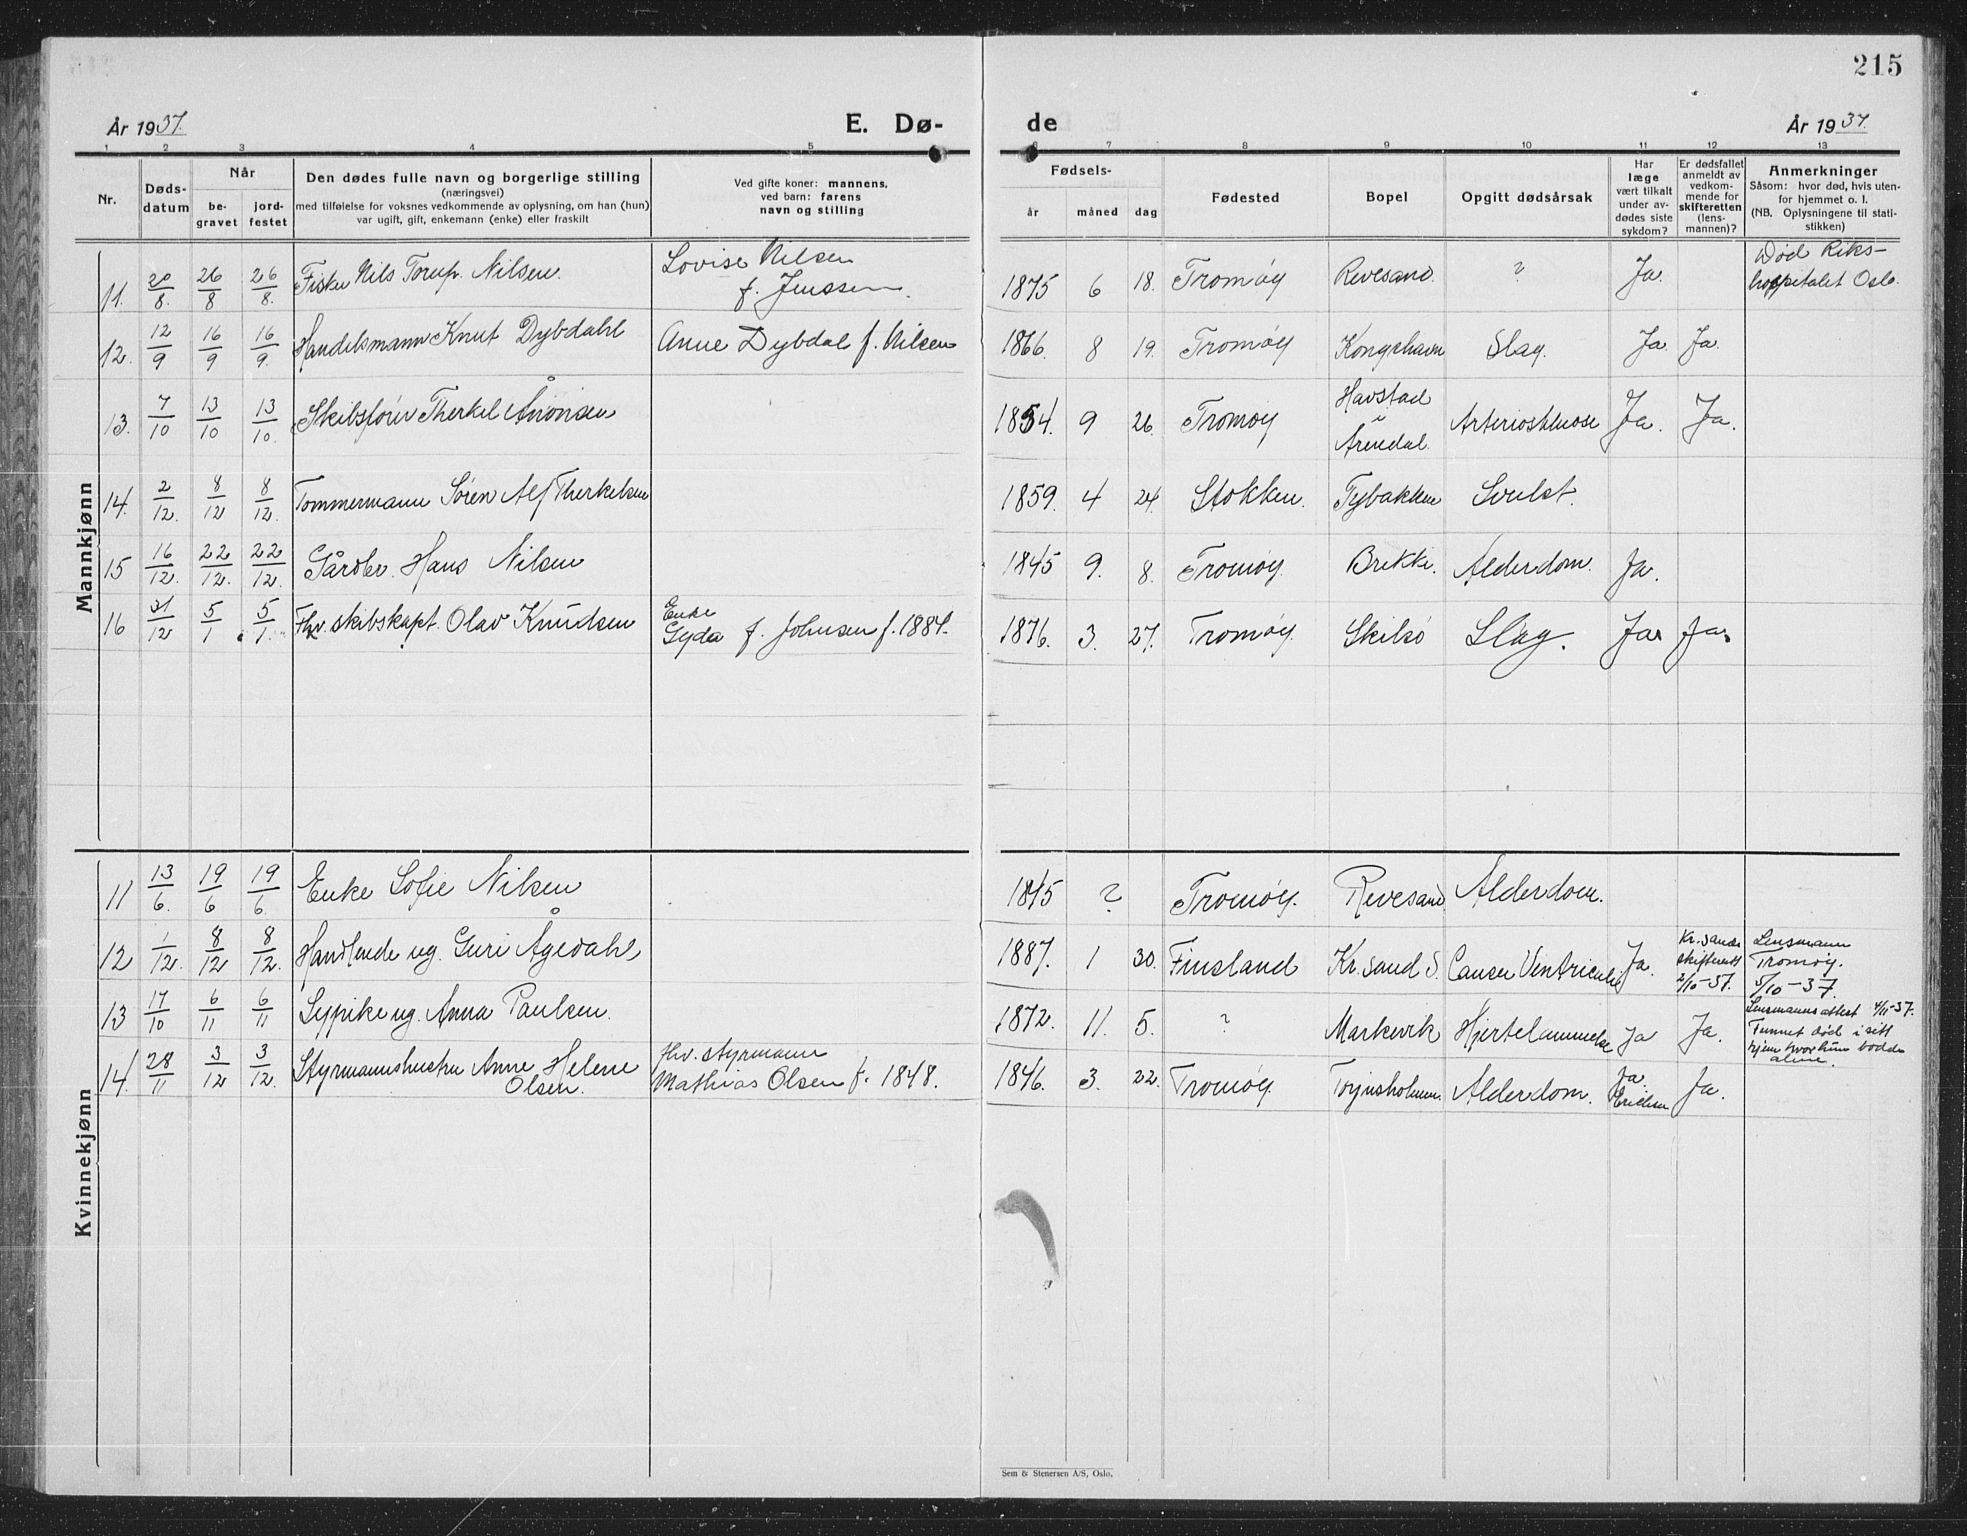 215
År 1937. E. Dø- de År 1937.
1 2 3 4 5 6 7 8 9 10 11 12 13
Nr. Døds-datum Når be-gravet jord-festet
Den dødes fulle navn og borgerlige stilling
(næringsvei)
med tilføielse for voksnes vedkommende av oplysning, om han (hun)
var ugift, gift, enkemann (enke) eller fraskilt
Ved gifte koner: mannens,
ved barn: farens
navn og stilling
Fødsels- år måned dag
Fødested Bopel Opgitt dødsårsak
Har læge vært tilkalt under av-dødes siste sykdom?
Er dødsfallet anmeldt av vedkom-mende for skifteretten (lens-mannen)?
Anmerkninger
Såsom: hvor død, hvis uten-
for hjemmet o. l.
(NB. Oplysningene til stati-
stikken)
Mannkjønn
11. 20/8. 26/8 26/8. Fisker Nils Torup. Nilsen. Lovise Nilsen f. Jenssen. 1875 6 18. Tromøy Revesand. ? Ja. Død Riks-hospitalet Oslo.
12. 12/9 16/9 16/9. Handelsmann Knut Dybdahl Anne Dybdal f. Nilsen 1866. 8 19. Tromøy Kongshavn Slag. Ja Ja.
13. 7/10 13/10 13/10. Skibsfører Therkel Ånonsen 1854. 9 26. Tromøy Havstad Arendal. Ja. Ja.
14. 2/12. 8/12 8/12. Tømmermann Søren Alf Therkelsen 1859. 4 24. Stokken. Tybakken Svulst.
15 16/12. 22/12. 22/12. Gårdbr. Hans Nilsen 1845 9. 8. Tromøy. Brekke. Alderdom. Ja.
16 31/12 5/1 5/1. Fhv. skibskapt. Olav Knudsen Enke Gyda f. Johnsen f. 1884. 1876. 3. 27. Tromøy. Skilsø Slag. Ja. Ja.
Kvinnekjønn
11 13/6. 19/6 19/6. Enke Sofie Nilsen 1845 ? Tromøy. Revesand Alderdom.
12 1/12. 8/12 8/12. Handlende ug. Guri Ågedahl 1887. 1 30. Finsland Kr. sand S. Cancer Ventriculi Ja. Kr. sands skifterett 2/10-37. Lensmann Tromøy. 5/10-37.
13 17/10 6/11 6/11 Sypike ug. Anna Paulsen. 1872. 11. 5. ? Markevik Hjertelammelse Ja Ja. Lensmannsattest 4/11-37. Funnet død i sitt hjem hvor hun bodde alene.
14. 28/11 3/12 3/12. Styrmannshustru Anne Helene Olsen. fhv. styrmann Mathias Olsen f. 1848. 1846. 3. 22. Tromøy. Torjusholmen. Alderdom. Ja. Ja.
Sem & Stenersen A/S, Oslo.